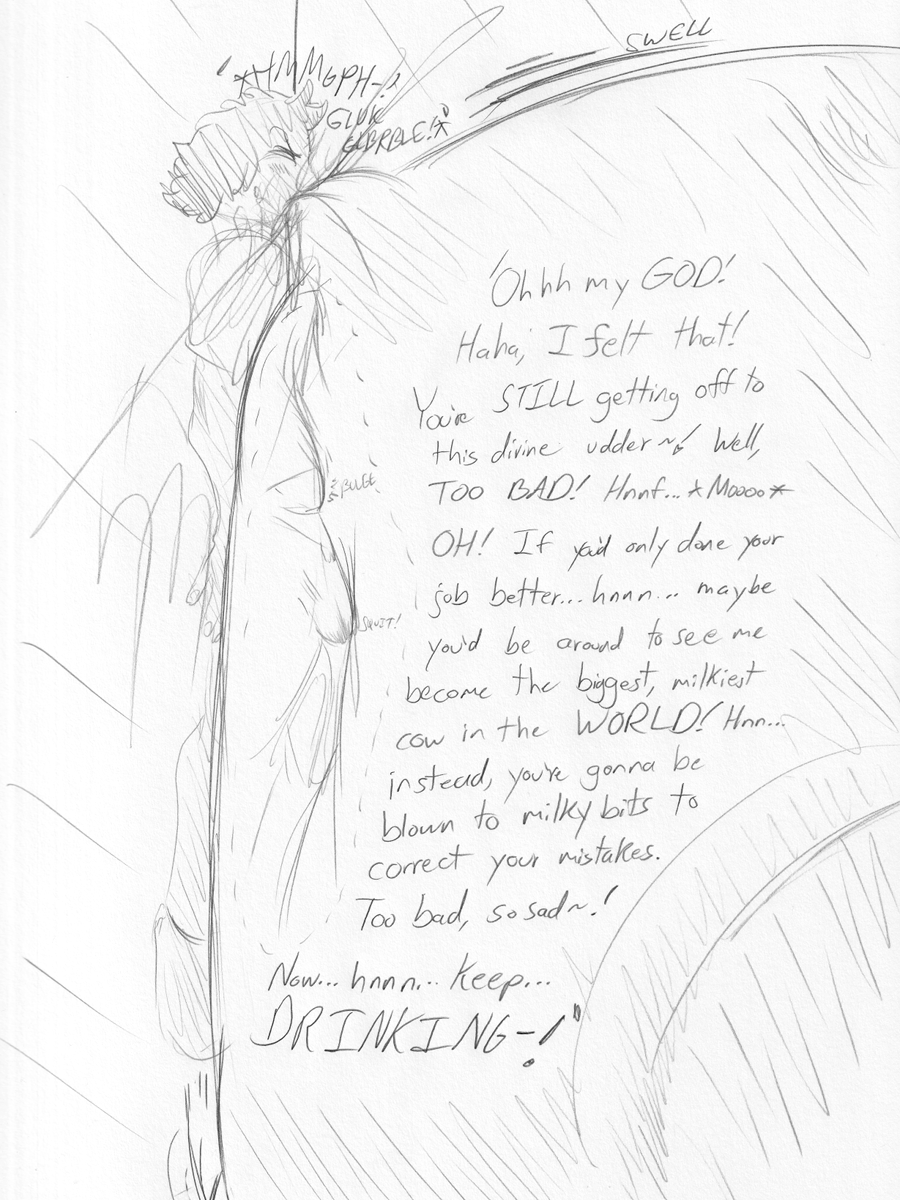 SWELL
*HMMGPH-!
GLUK
GLBRBLE!*
'Ohhh my GOD!
Haha, I felt that!
You're STILL getting off to
this divine udder~! Well,
TOO BAD! Hnnf... *Moooo*
OH! If you'd only done your
job better... hnnn... maybe
you'd be around to see me
become the biggest, milkiest
cow in the WORLD! Hnn...
instead, you're gonna be
blown to milky bits to
correct your mistakes.
Too bad, so sad~!
Now... hnnn... keep...
DRINKING-!'
BULGE